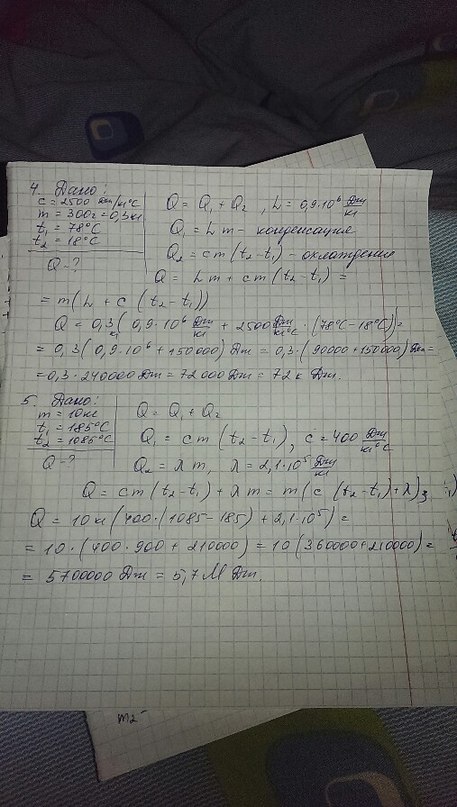 4. Дано:
c = 2500 Дж/кг°C
m = 300г = 0,3кг
t₁ = 78°C
t₂ = 18°C
Q - ?
Q = Q₁ + Q₂ , L = 0,9·10⁶ Дж/кг
Q₁ = L m - конденсация
Q₂ = cm(t₂-t₁) - охлаждения
Q = Lm + cm(t₂-t₁) =
= m(L + c(t₂-t₁))
Q = 0,3 кг(0,9·10⁶ Дж/кг + 2500 Дж/кг°C · (78°C-18°C) =
= 0,3(0,9·10⁶ + 150000) Дж = 0,3·(90000+150000) Дж =
= 0,3·240000 Дж = 72000 Дж = 72 к Дж.
5. Дано:
m = 10кг
t₁ = 185°C
t₂ = 1085°C
Q - ?
Q = Q₁ + Q₂
Q₁ = cm(t₂-t₁), c = 400 Дж/кг°C
Q₂ = λm, λ = 2,1·10⁵ Дж/кг
Q = cm(t₂-t₁) + λm = m(c(t₂-t₁)+λ)
Q = 10 кг(400·(1085-185) + 2,1·10⁵) =
= 10·(400·900 + 210000) = 10(360000+210000) =
= 5700000 Дж = 5,7 М Дж.
m₂